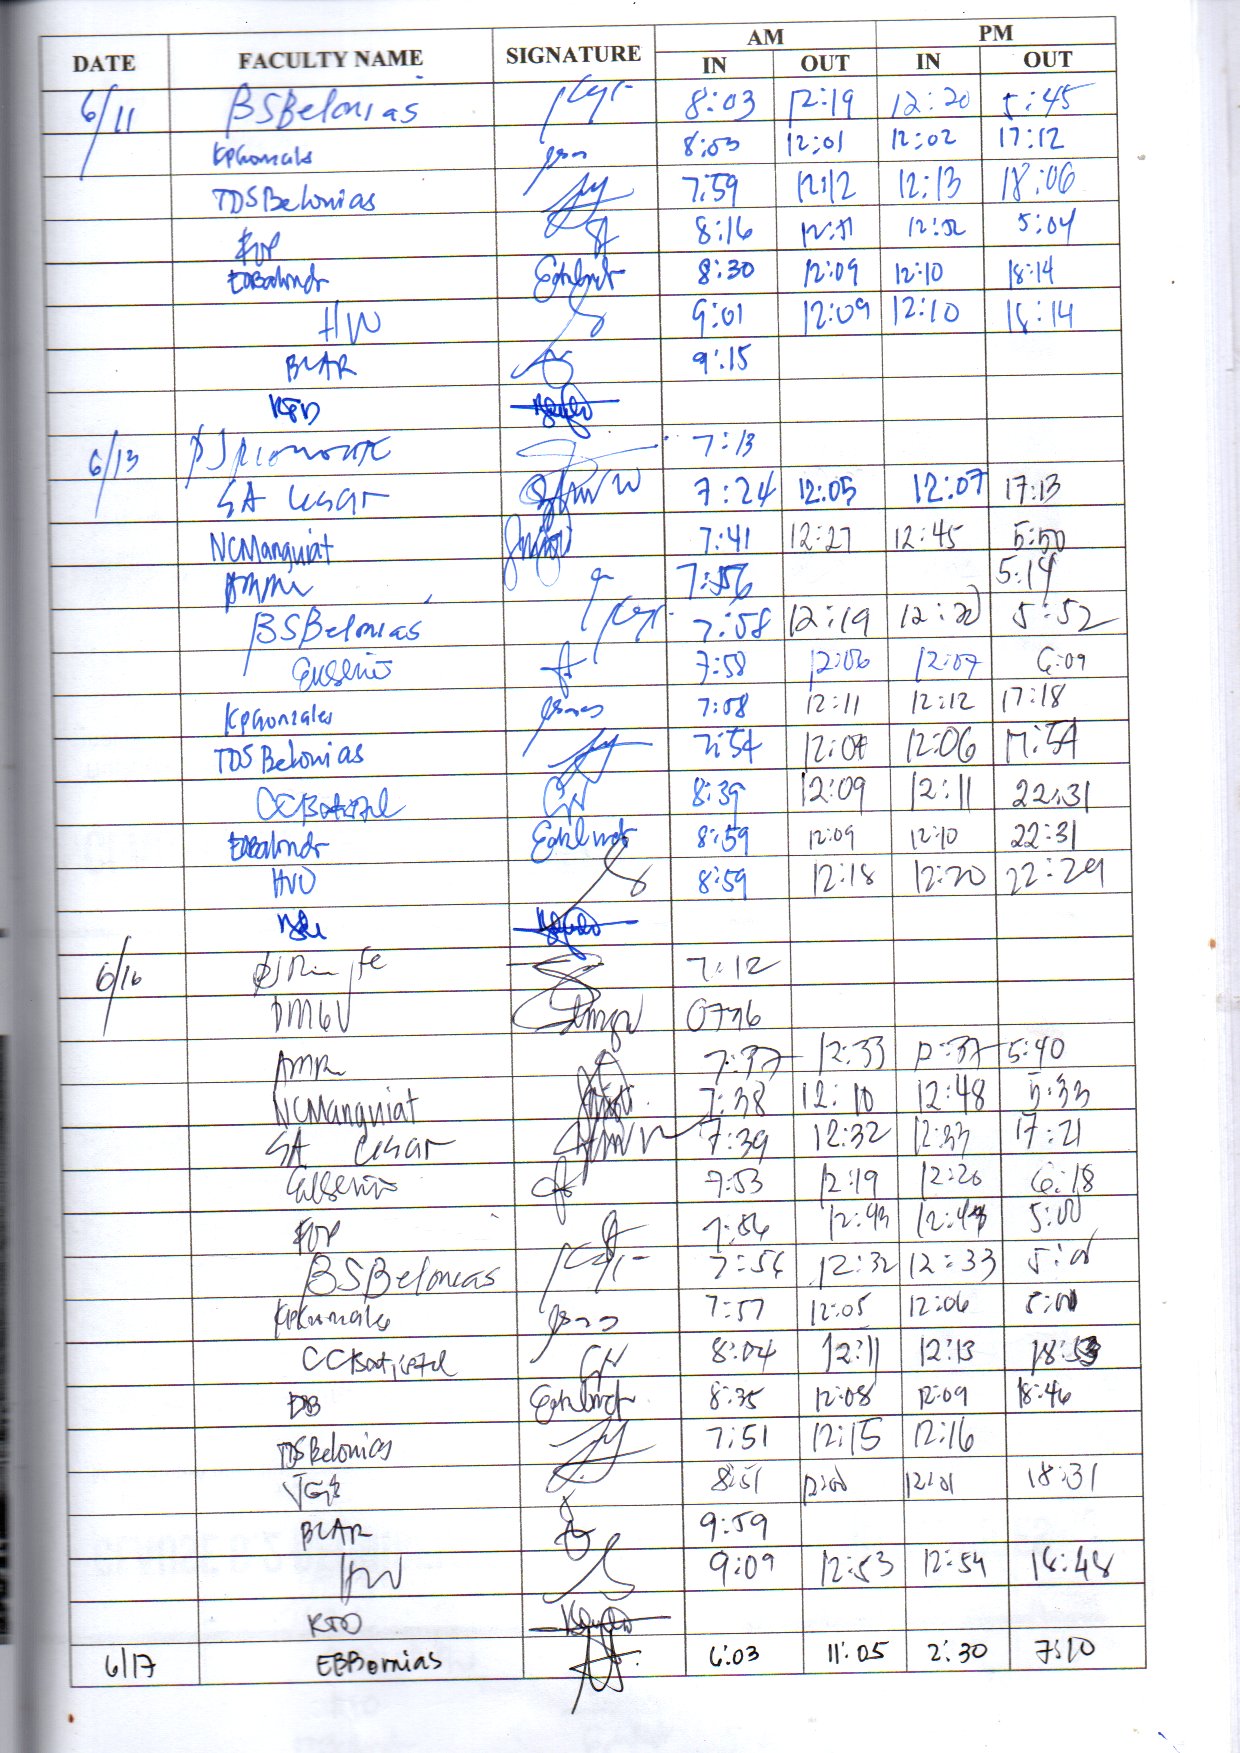 DATE FACULTY NAME SIGNATURE AM PM
IN OUT IN OUT
6/11 BSBelonias 8:03 12:19 12:20 5:45
KPGonzales 8:03 12:01 12:02 17:12
TDSBelonias 7:59 12:12 12:13 18:06
8:16 12:51 12:52 5:04
EDBalindr 8:30 12:09 12:10 18:14
HVO 9:01 12:09 12:10 18:14
BLAR 9:15
KTD
6/13 7:13
SA Cesar 7:24 12:05 12:07 17:13
NCManguiat 7:41 12:27 12:45 5:50
7:56 5:14
BSBelonias 7:58 12:19 12:20 5:52
7:58 12:06 12:07 6:09
KPGonzales 7:08 12:11 12:12 17:18
TDSBelonias 7:54 12:04 12:06 17:54
CCBatistel 8:39 12:09 12:11 22:31
EDBalindr 8:59 12:09 12:10 22:31
HVO 8:59 12:18 12:20 22:29
6/16 7:12
DMGV 0716
AMR 7:37 12:33 12:37 5:40
NCManguiat 7:38 12:10 12:48 5:33
SA Cesar 7:39 12:32 12:33 17:21
7:53 12:19 12:20 6:18
7:56 12:43 12:44 5:00
BSBelonias 7:56 12:32 12:33 5:01
KPGonzales 7:57 12:05 12:06 5:00
CCBatistel 8:04 12:11 12:13 18:53
DB 8:35 12:08 12:09 18:46
TDSBelonias 7:51 12:15 12:16
VGB 8:51 12:00 12:01 18:31
BLAR 9:59
HVO 9:09 12:53 12:54 18:48
KTD
6/17 EBBornias 6:03 11:05 2:30 7:10